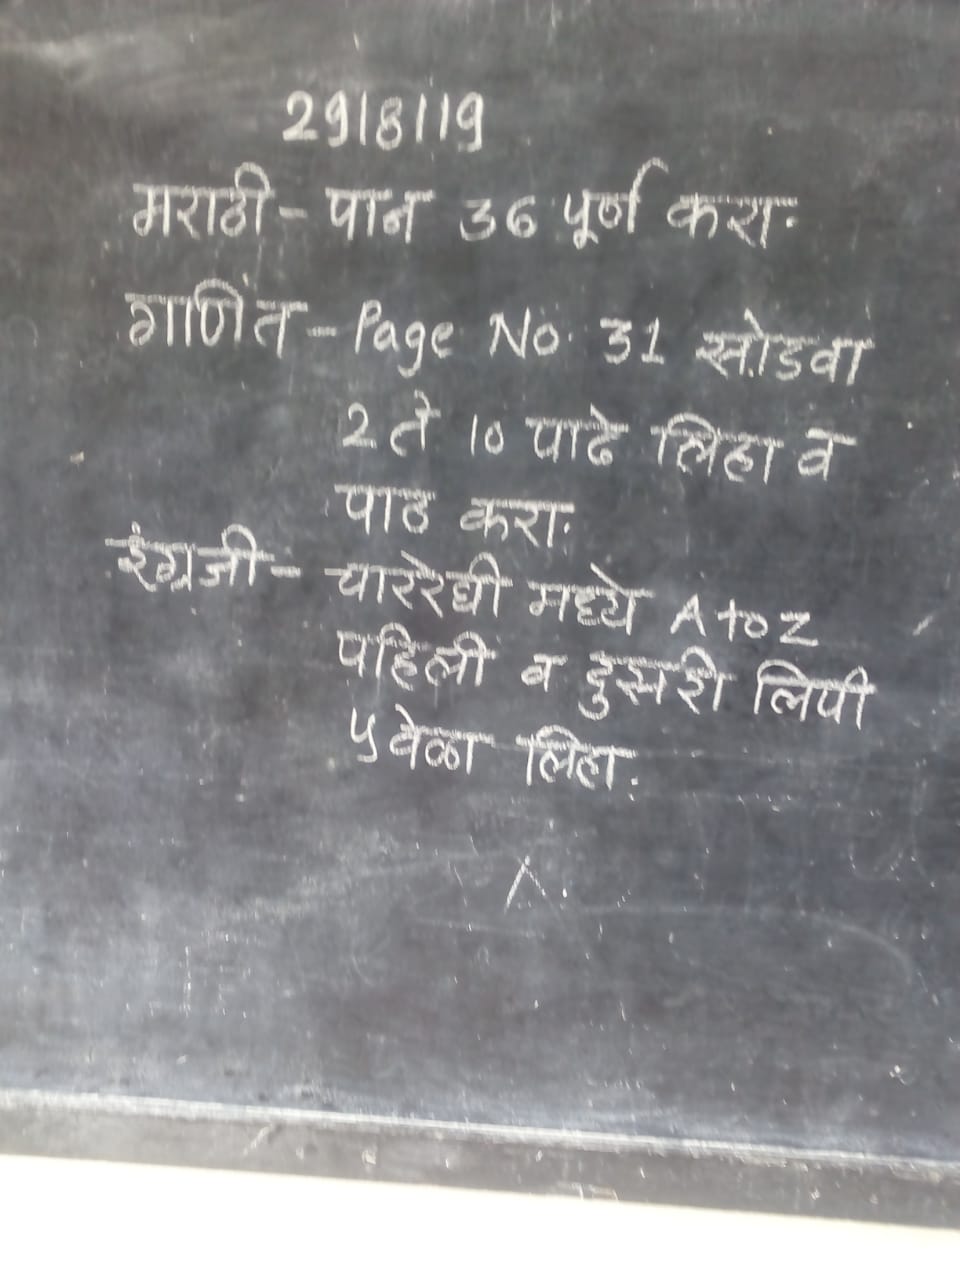 29/8/19
मराठी - पान 36 पूर्ण करा.
गणित - Page No. 31 सोडवा
2 ते 10 पाढे लिहा व
पाठ करा.
इंग्रजी - चाररेघी मध्ये A to Z
पहिली व दुसरी लिपी
५ वेळा लिहा.